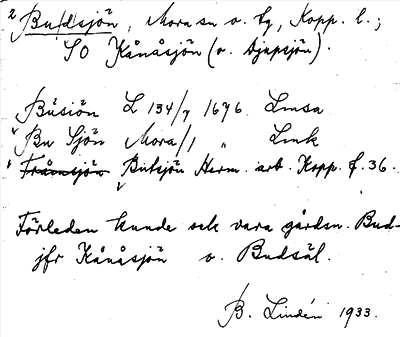 2 Bu(d)sjön, Mora sn o. tg, Kopp. l.;
SO Kånåsjön (o. Djupsjön).
Busiön L 134/7 1696 Limsa
v Bu Sjön Mora/1 " Link
v Butsjön Herm. arb. Kopp. f. 36.
Förleden kunde och vara gårdsn. Bud-
jfr Kånåsjön o. Budsäl.
B. Lindén 1933.